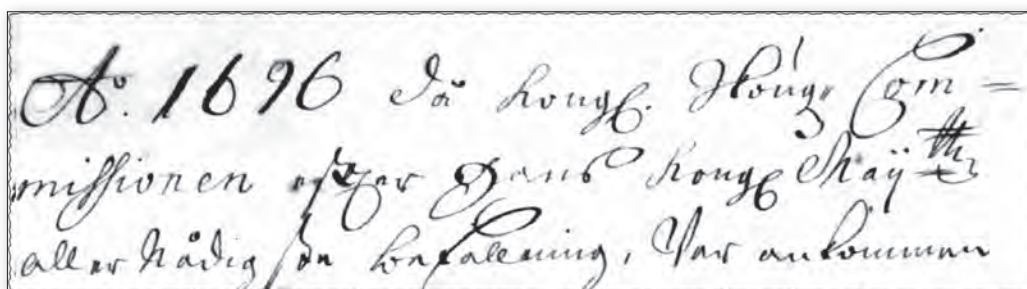 Ao. 1696 då Kongl. Skougz Com=
missionen effter Hans Kongl Maÿttz
aller Nådigste befallning, Var ankommen